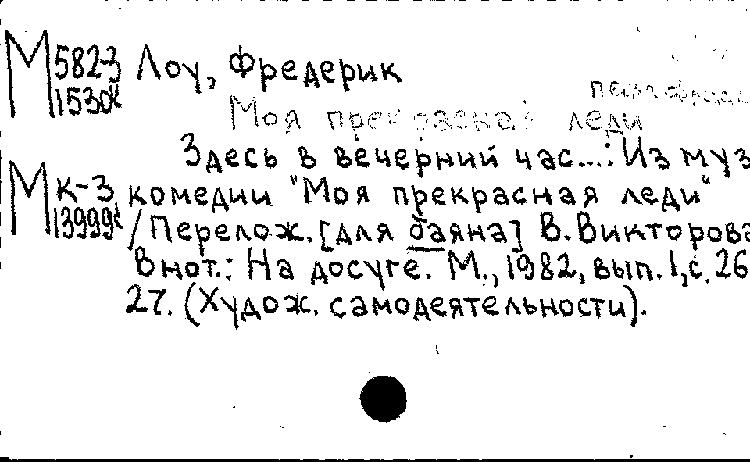 М 582-3 Лоу, Фредерик
1530
Моя прекрасная леди
Здесь в вечерний час...: Из муз
М К-3 комедии "Моя прекрасная леди"
13999 /Перелож. [для баяна] В. Викторова
В нот.: На досуге. М., 1982, вып. 1, с. 26
27. (Худож. самодеятельности).